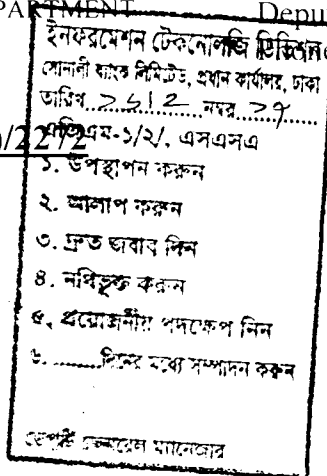 PARTMENT Depu
ইনফরমেশন টেকনোলজি ডিভিশন
সোনালী ব্যাংক লিমিটেড, প্রধান কার্যালয়, ঢাকা
তারিখ......... নম্বর.........
এজিএম-১/২/, এসএসএ
১. উপস্থাপন করুন
২. আলাপ করুন
৩. দ্রুত জবাব দিন
৪. নথিভুক্ত করুন
৫. প্রয়োজনীয় পদক্ষেপ নিন
৬. .........দিনের মধ্যে সম্পাদন করুন
ডেপুটি জেনারেল ম্যানেজার